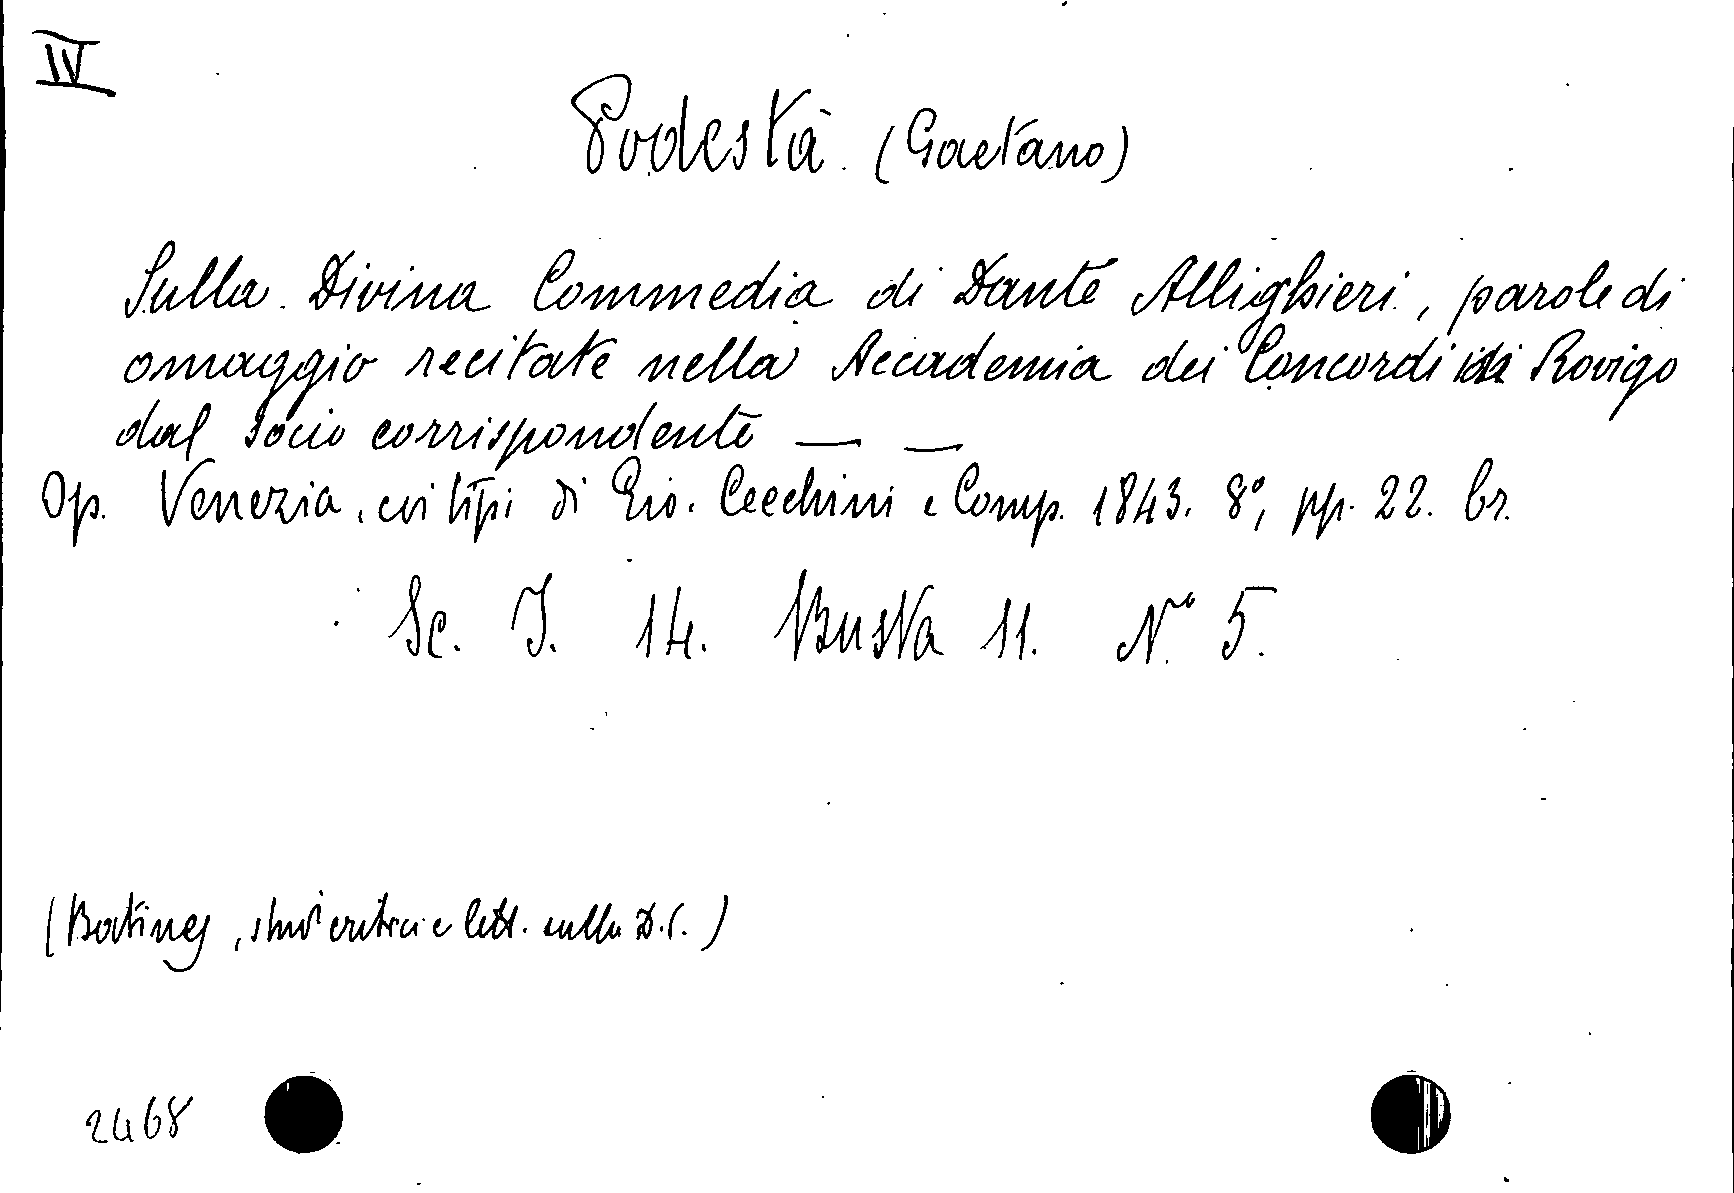 IV
Podestà (Gaetano)
Sulla Divina Commedia di Dante Allighieri, parole di
omaggio recitate nella Accademia dei Concordi di Rovigo
dal socio corrispondente — —
Op. Venezia, coi tipi di Gio. Cecchini e Comp. 1843. 8°, pp. 22. br.
Sc. I. 14. Busta 11. N° 5.
(Batines, studi critici e lett. sulla D.C.)
2468